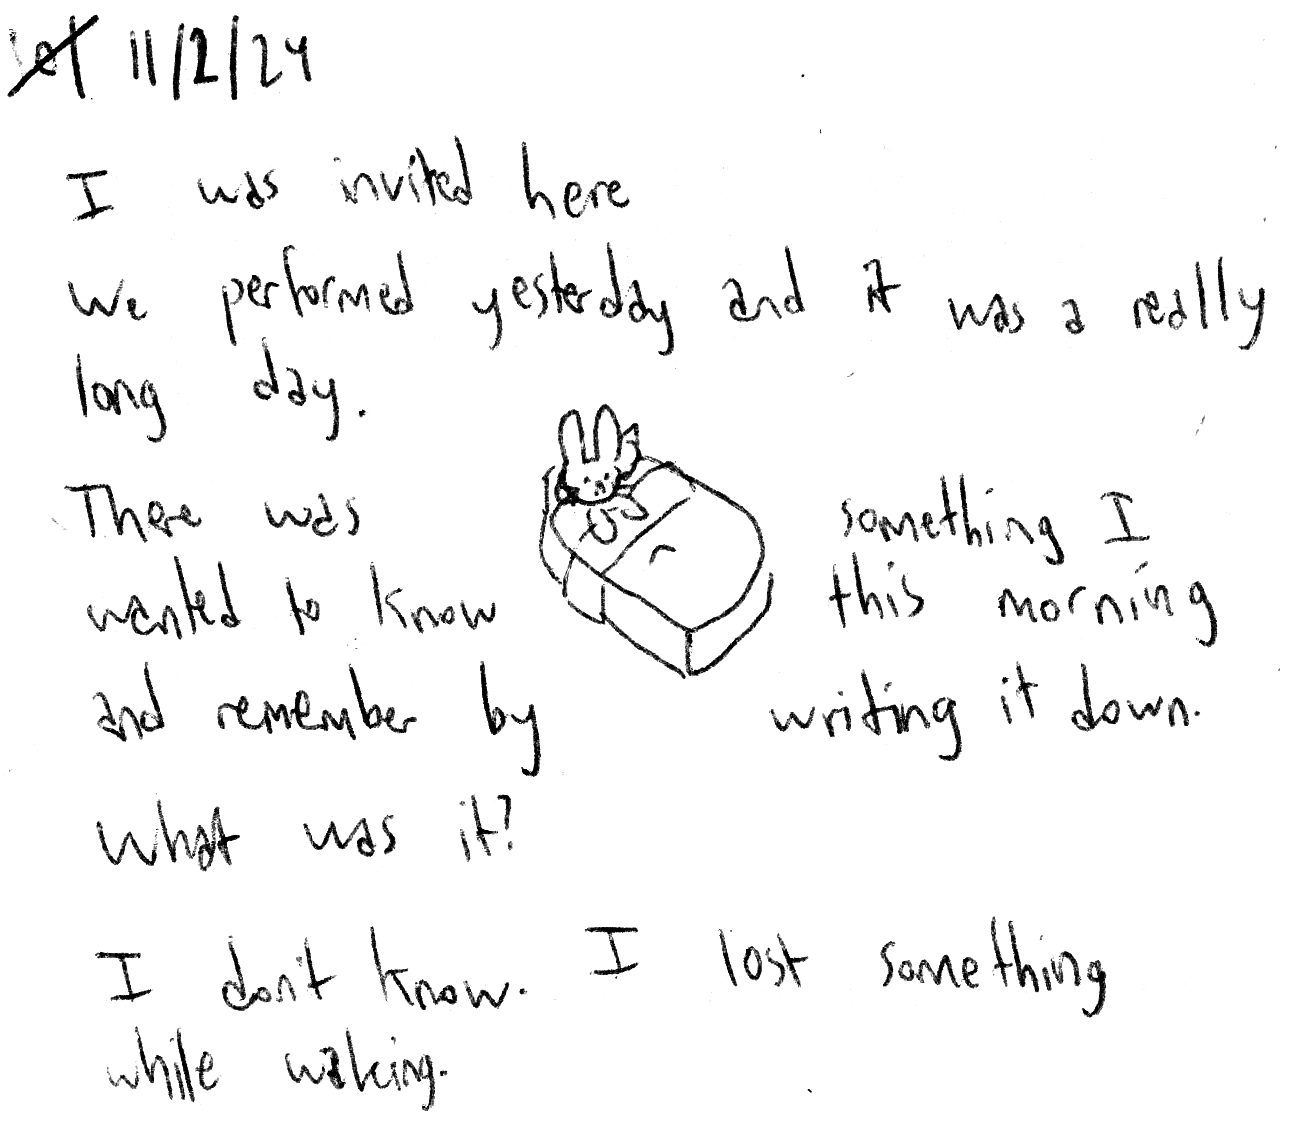 11/2/24
I was invited here
We performed yesterday and it was a really
long day.
There was something I
wanted to know this morning
and remember by writing it down.
What was it?
I don't know. I lost something
while waking.